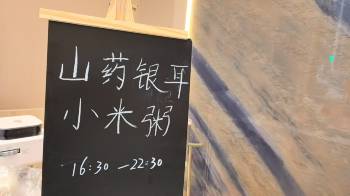 山药银耳
小米粥
16:30-22:30